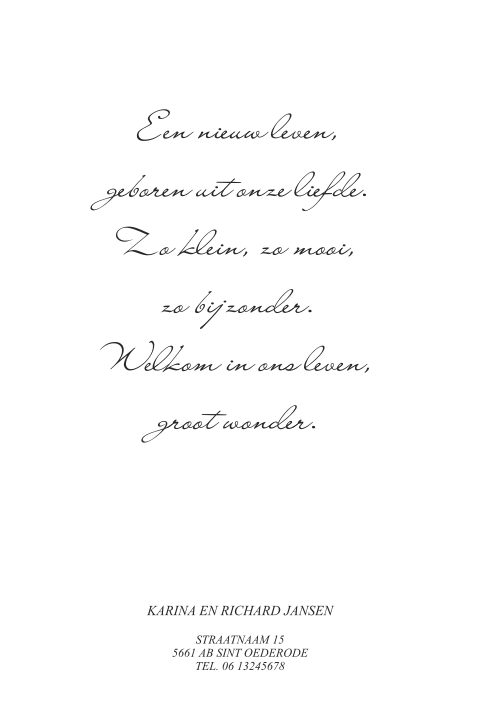 Een nieuw leven,
geboren uit onze liefde.
Zo klein, zo mooi,
zo bijzonder.
Welkom in ons leven,
groot wonder.
KARINA EN RICHARD JANSEN
STRAATNAAM 15
5661 AB SINT OEDERODE
TEL. 06 13245678